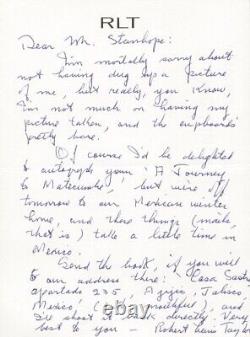 RLT
Dear Mr. Stanhope:
I'm mortally sorry about
not having dug up a picture
of me, but really, you know,
I'm not much on having my
picture taken, and the cupboards
pretty bare.
Of course I'd be delighted
to autograph your "A Journey
to Matecumbe", but we're off
tomorrow to our Mexican winter
home, and these things (mails,
that is) take a little time in
Mexico.
Send the book, if you will
to our address there: Casa
apartado 235, Jalisco,
Mexico (a mouthful), and
I'll shoot it back directly. Very
best to you — Robert Lewis Taylor